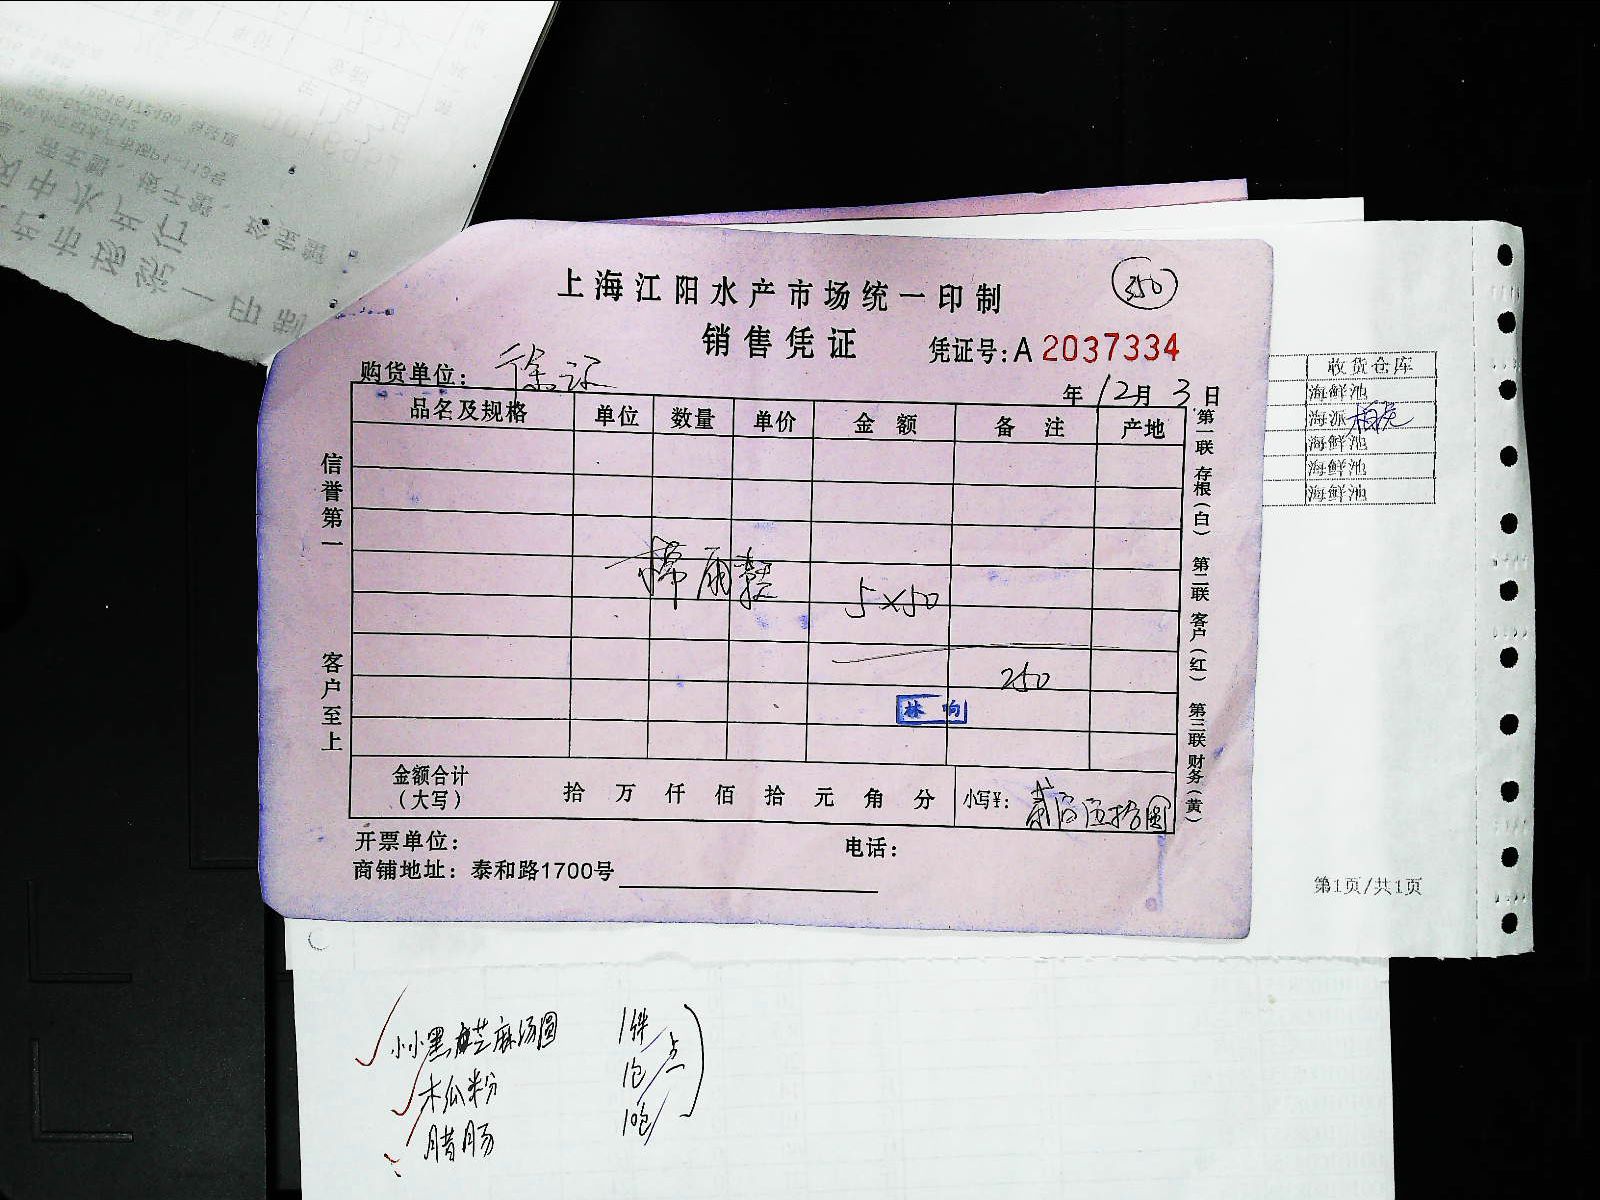 上海江阳水产市场统一印制
350
销售凭证
凭证号:A 2037334
购货单位:
年 12月 3日
品名及规格 单位 数量 单价 金额 备注 产地
5×50
250
林 响
金额合计（大写） 拾 万 仟 佰 拾 元 角 分 小写¥: 贰百伍拾圆
开票单位: 电话:
商铺地址: 泰和路1700号
信誉第一
客户至上
第一联 存根(白) 第二联 客户(红) 第三联 财务(黄)
收货仓库
海鲜池
海派
海鲜池
海鲜池
海鲜池
第1页/共1页
小小黑芝麻汤圆 1件
木瓜粉 1包
腊肠 10包